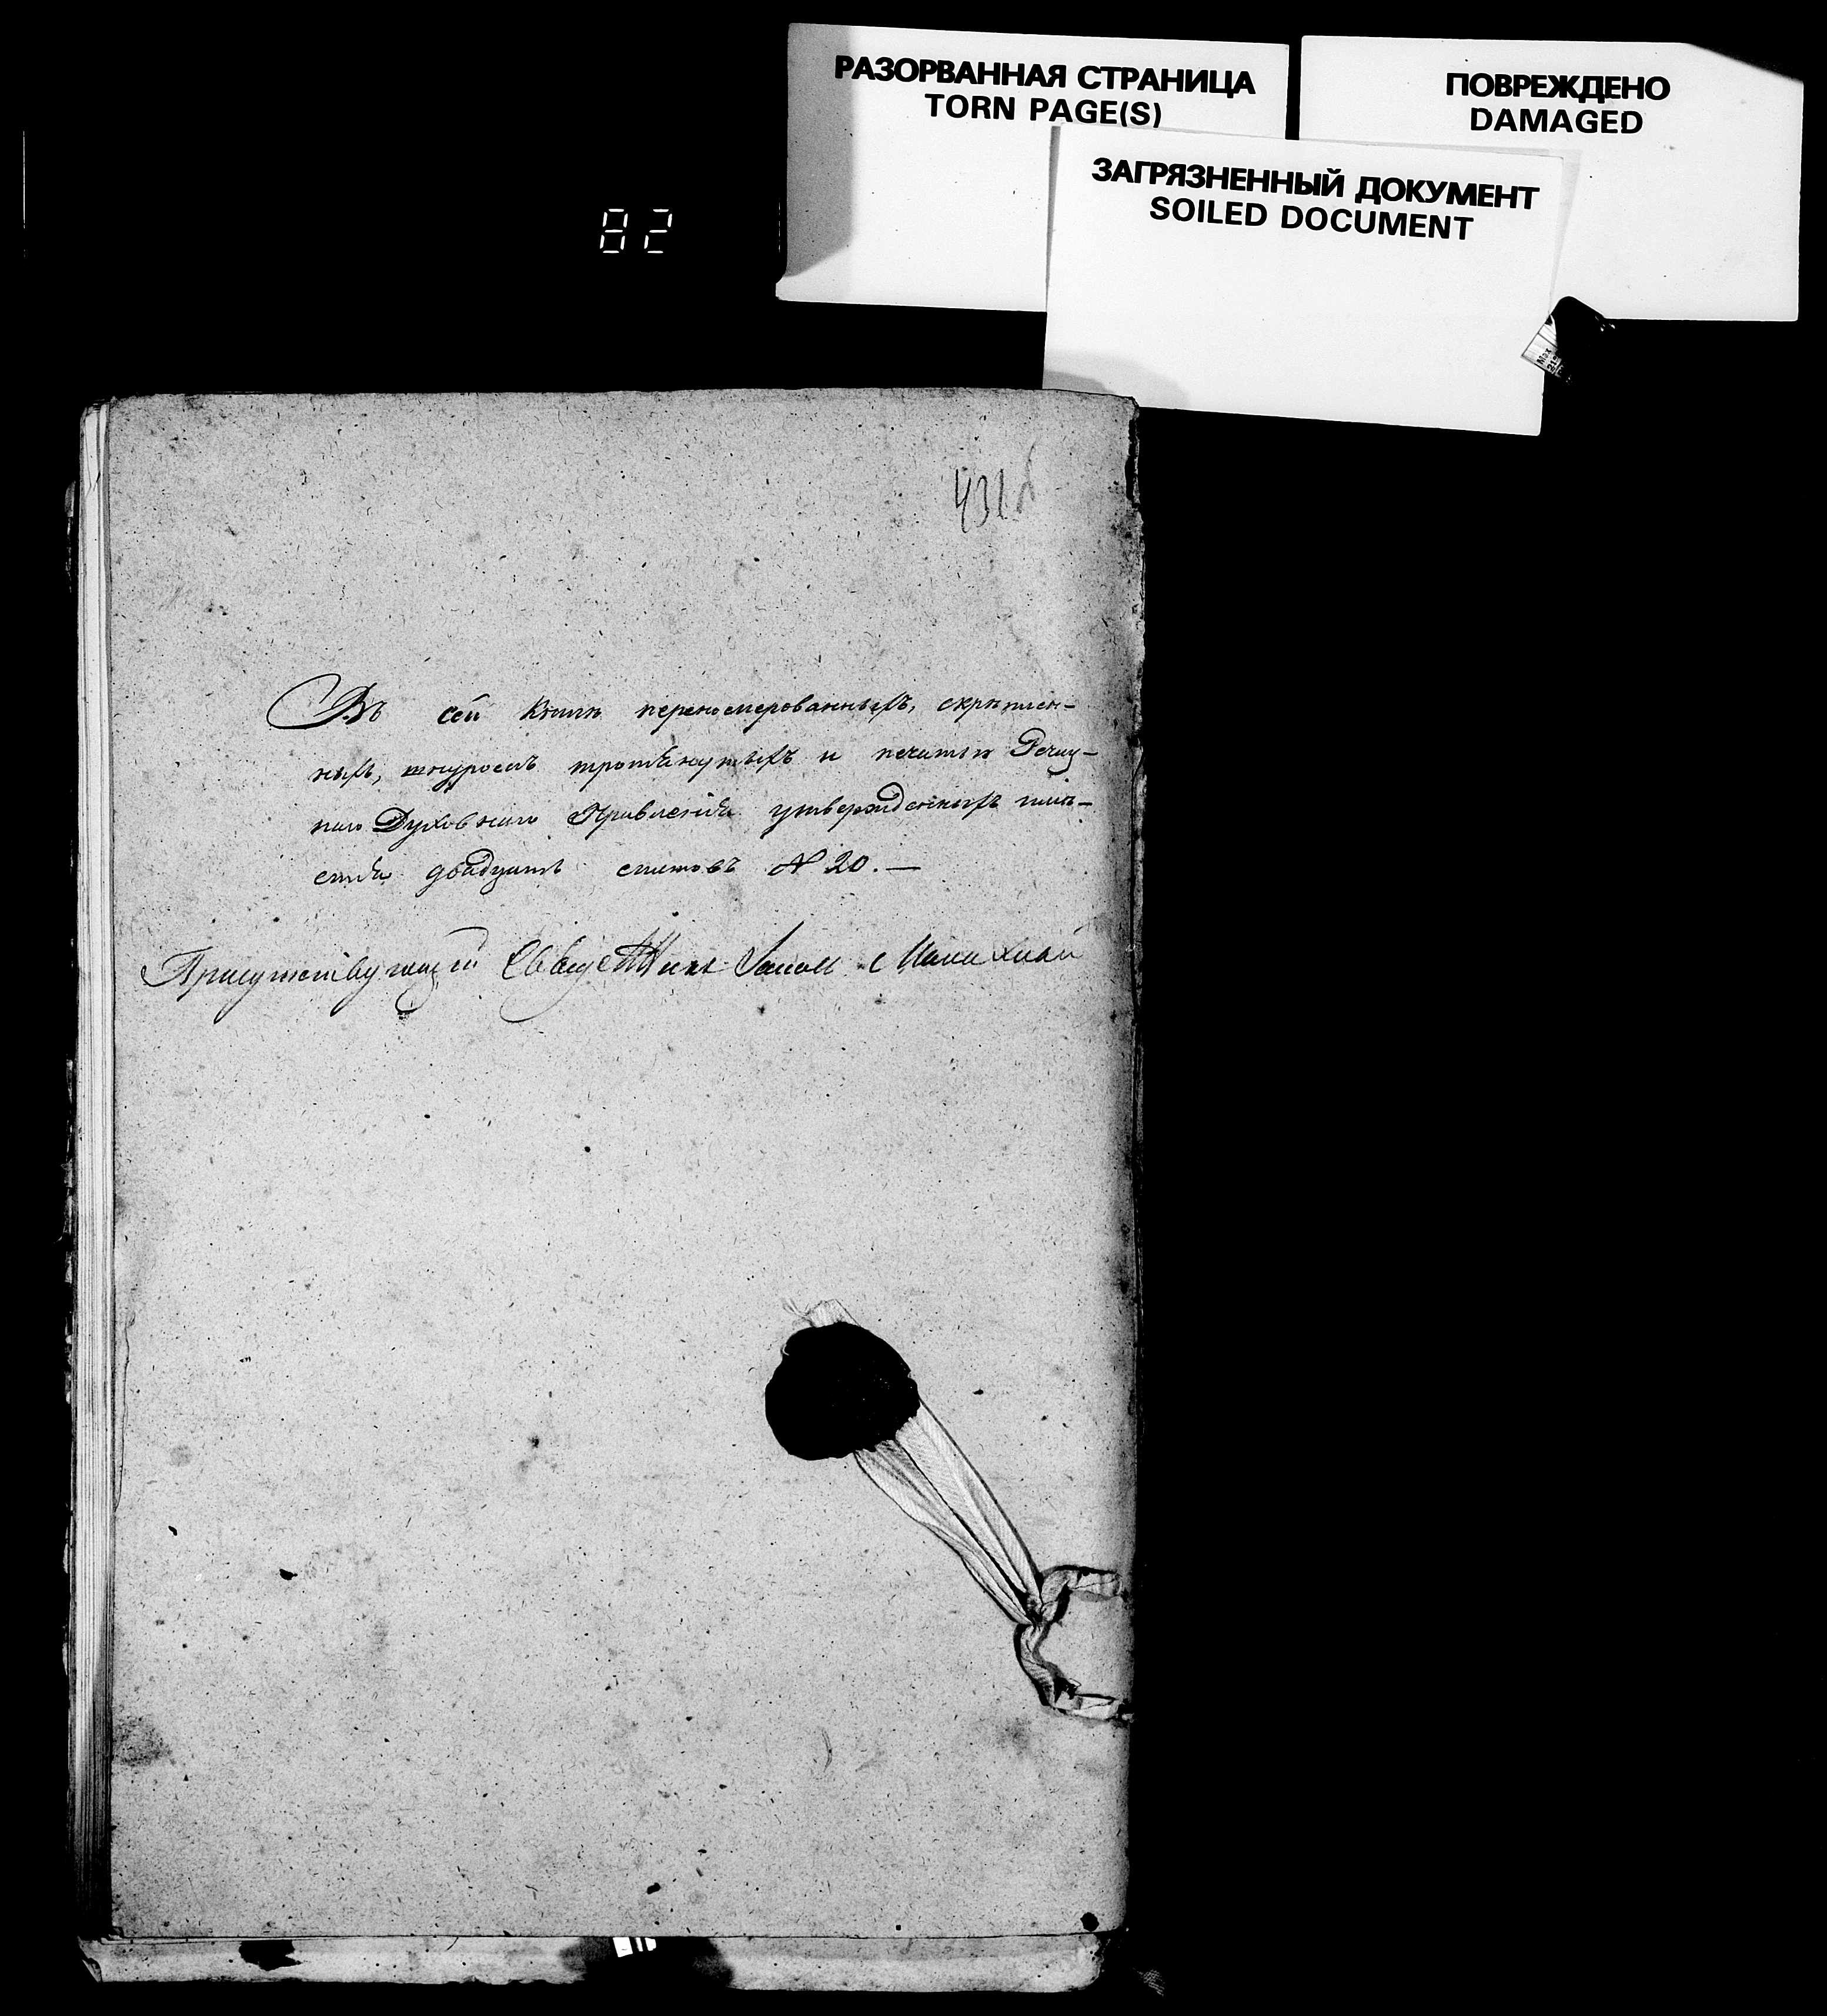 РАЗОРВАННАЯ СТРАНИЦА
TORN PAGE(S)
ПОВРЕЖДЕНО
DAMAGED
ЗАГРЯЗНЕННЫЙ ДОКУМЕНТ
SOILED DOCUMENT
82
431
Въ сей Книгѣ переномерованныхъ, скрѣплен-
ныхъ, шнуромъ протянутыхъ и печатью Речиц-
каго Духовнаго Правленія утвержденныхъ
двадцать листовъ № 20. —
Присутствующій Священникъ